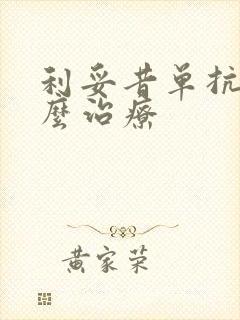 利妥昔单抗
麽治疗
黄家荣